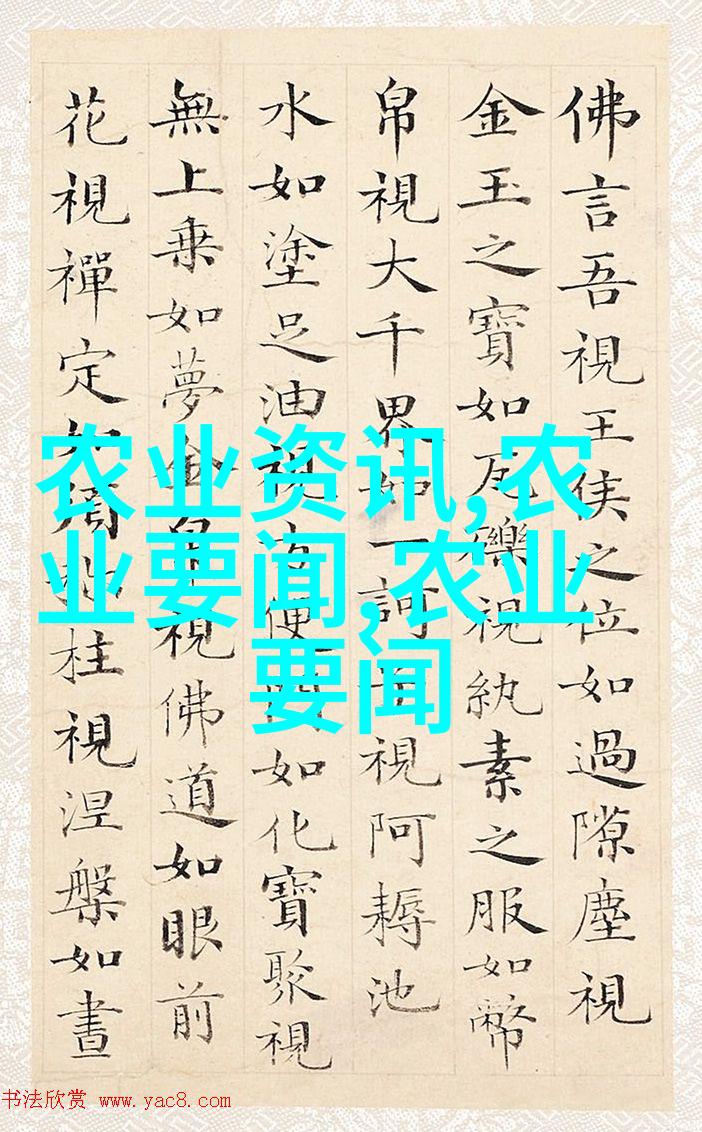 佛言吾視王侯之位如過隙塵視
金玉之寶如瓦礫視紈素之服如幣
帛視大千界如一訶子視阿耨池
水如塗足油視方便門如化寶聚視
無上乗如夢金帛視佛道如眼前
花視禪定如須弥柱視涅槃如晝
农业资讯,农
业要闻,农业
要闻
书法欣赏 www.yac8.com